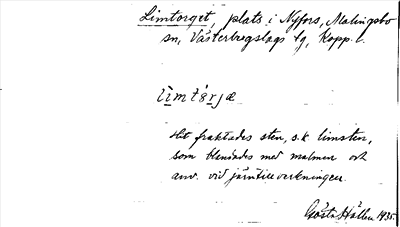 Limtorget, plats i Nyfors, Malingsbo
sn, Västerbergslags tg, Kopp. l.
Hit fraktades sten, s.k. limsten,
som blandades med malmen och
anv. vid järntillverkningen.
Gösta Hällen 1935.